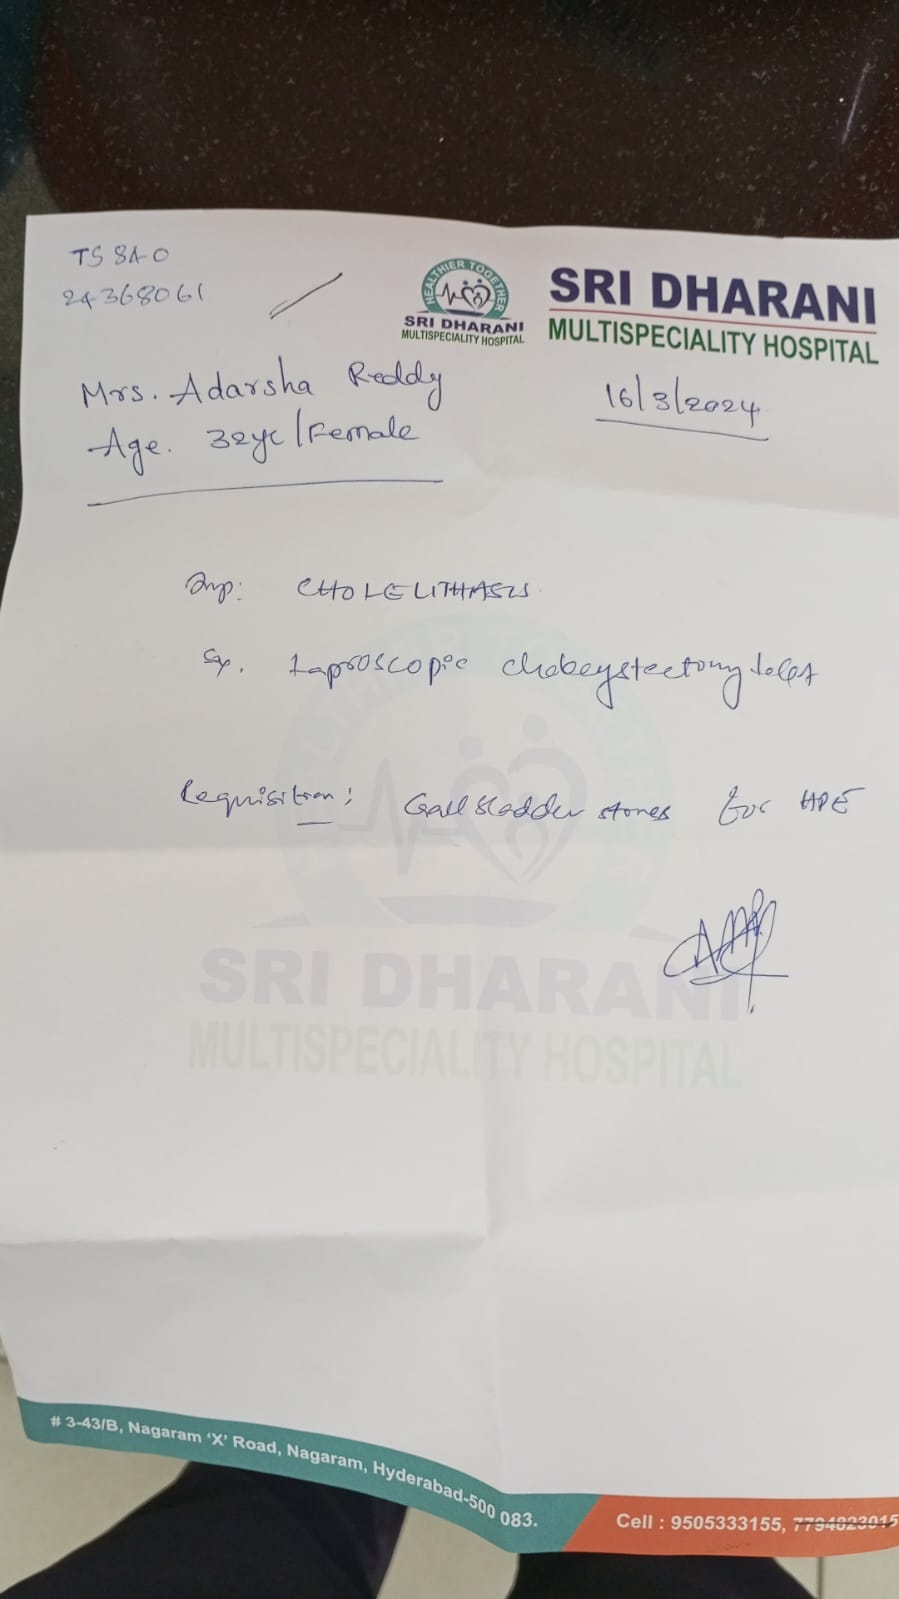 TS 8A-0
24368061
HEALTHIER TOGETHER
SRI DHARANI
MULTISPECIALITY HOSPITAL
SRI DHARANI
MULTISPECIALITY HOSPITAL
Mrs. Adarsha Reddy
16/3/2024
Age. 32yr/Female
Imp: CHOLELITHASIS
Sx. Laproscopic
Requisition: Gall Bladder stones for HPE
SRI DHARANI
MULTISPECIALITY HOSPITAL
# 3-43/B, Nagaram 'X' Road, Nagaram, Hyderabad-500 083.
Cell : 9505333155, 7794823015